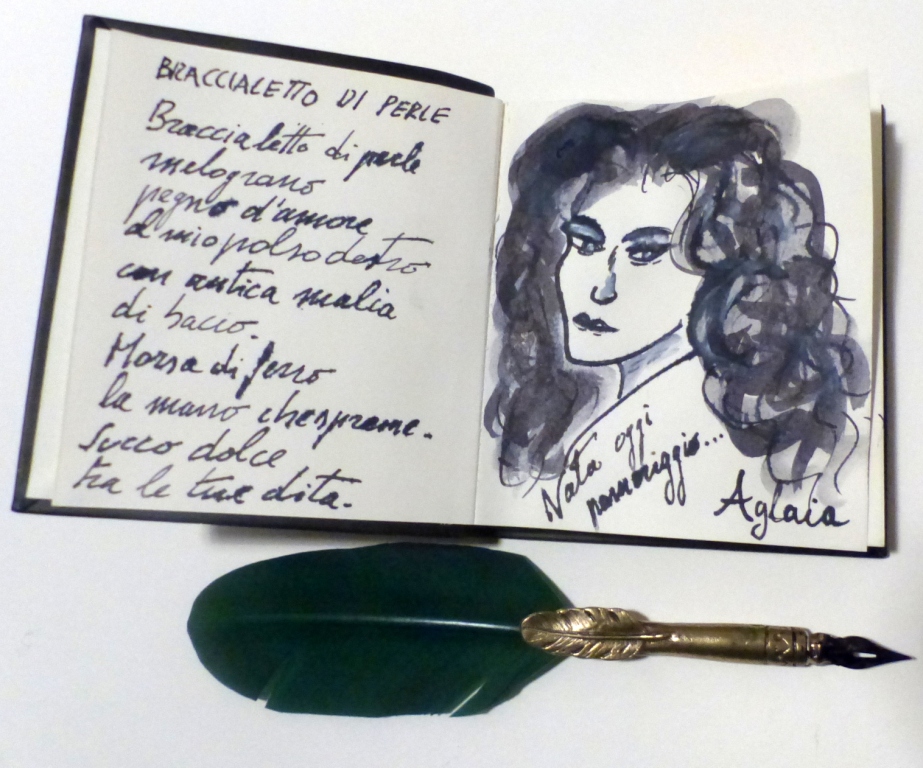 BRACCIALETTO DI PERLE
Braccialetto di perle
melograno
pegno d'amore
al mio polso destro
con antica malia
di bacio.
Morsa di ferro
la mano che spreme.
Succo dolce
tra le tue dita.
Nata oggi
pomeriggio...
Aglaia